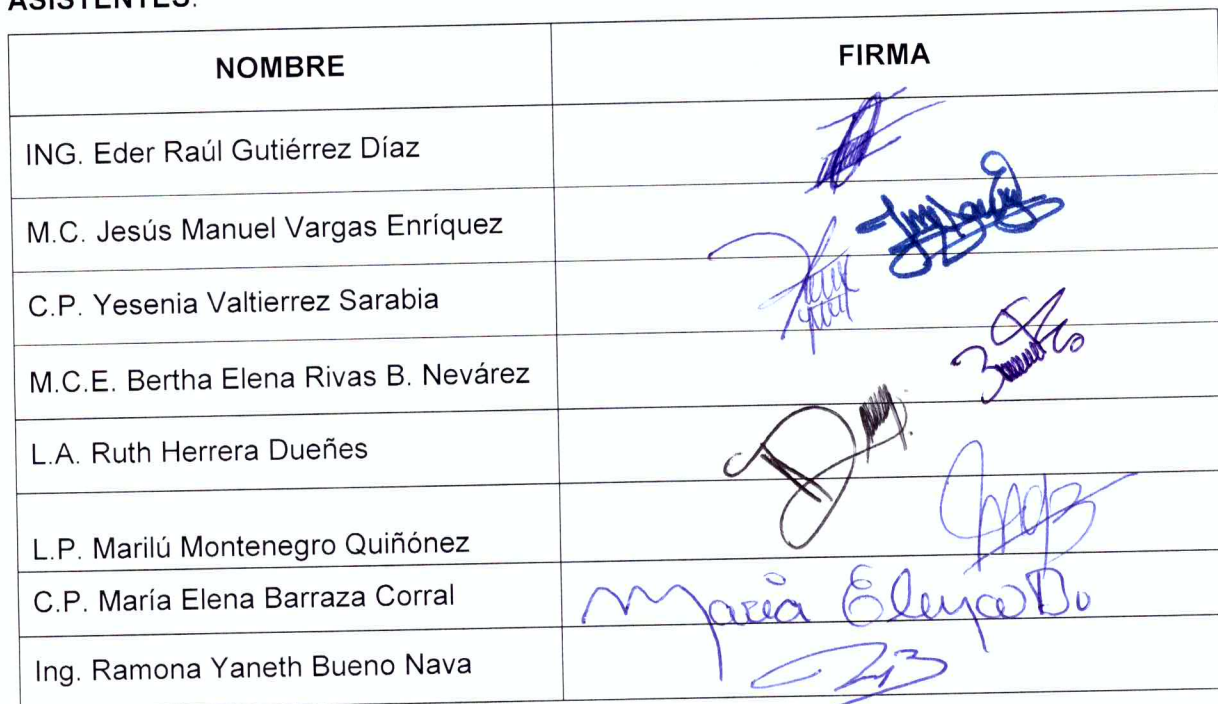 ASISTENTES.
NOMBRE FIRMA
ING. Eder Raúl Gutiérrez Díaz
M.C. Jesús Manuel Vargas Enríquez
C.P. Yesenia Valtierrez Sarabia
M.C.E. Bertha Elena Rivas B. Nevárez
L.A. Ruth Herrera Dueñes
L.P. Marilú Montenegro Quiñónez
C.P. María Elena Barraza Corral Maria Elena
Ing. Ramona Yaneth Bueno Nava